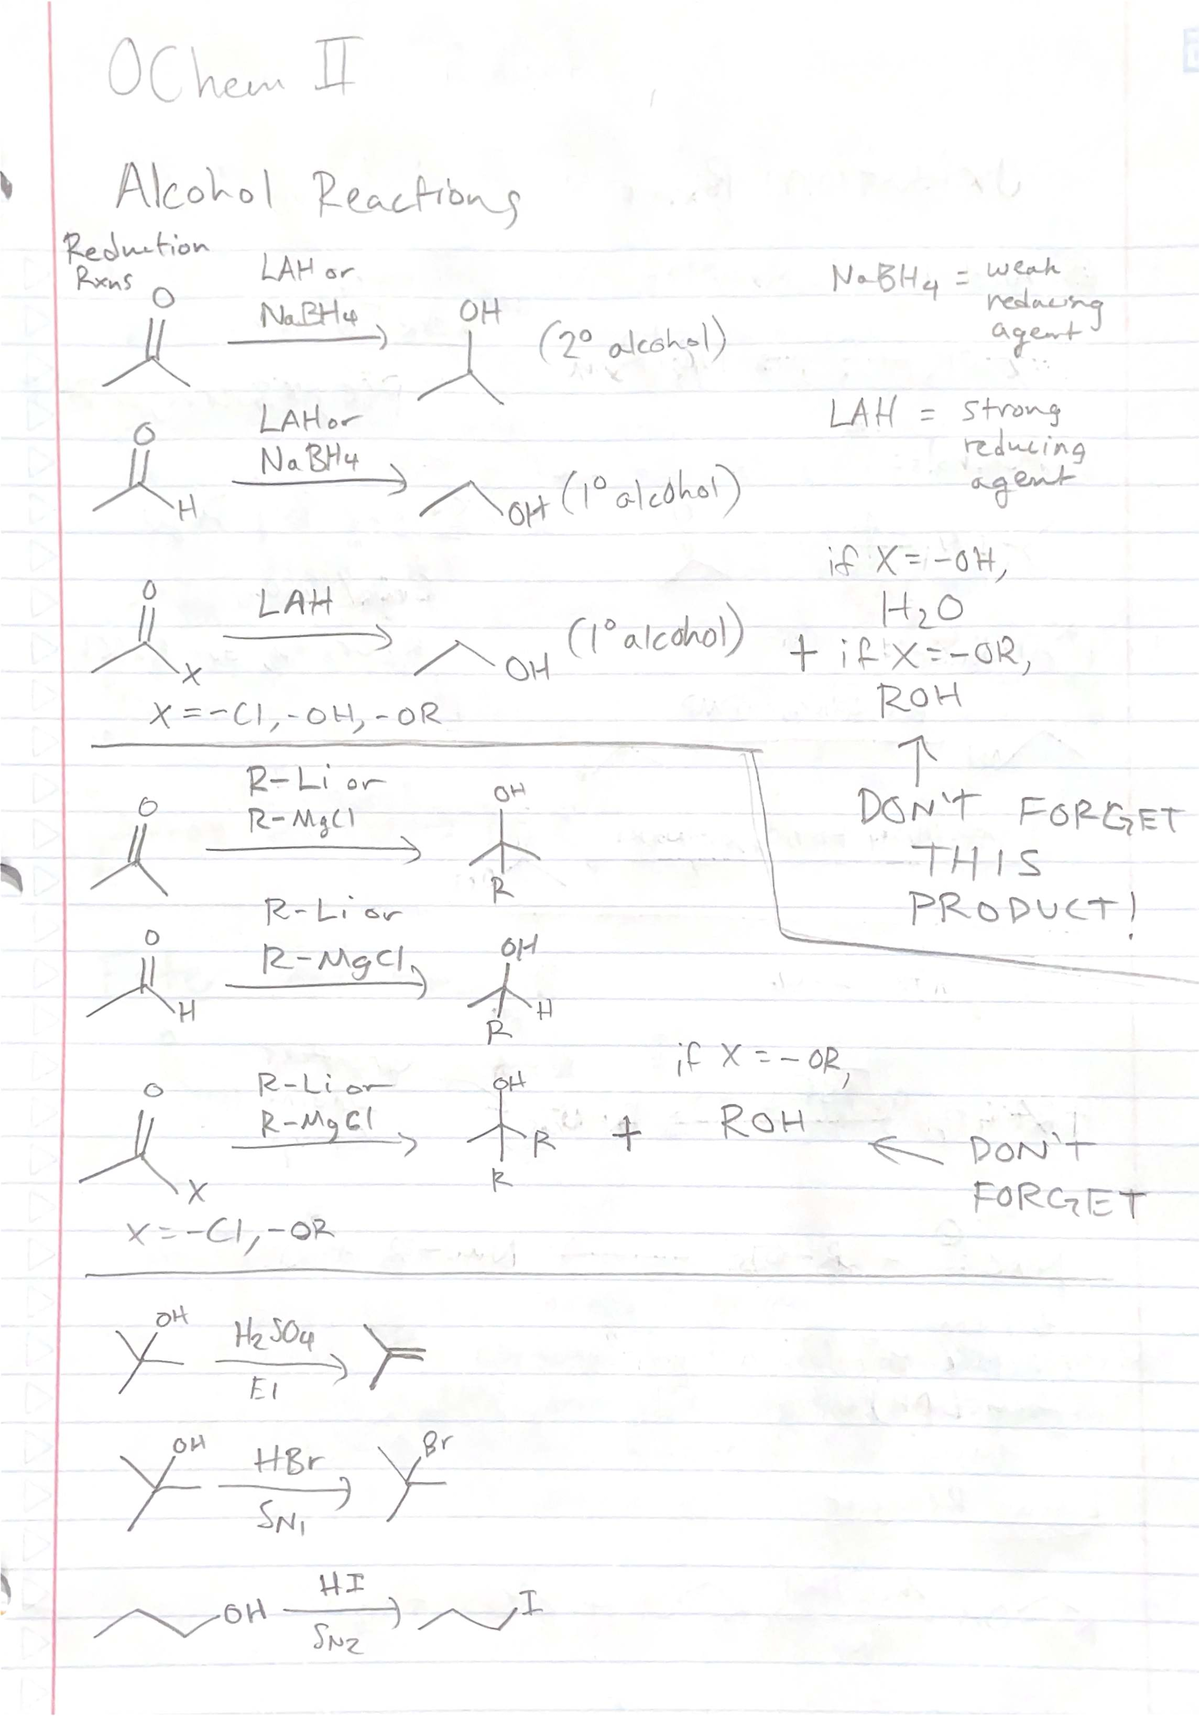 OChem II
Alcohol Reactions
Reduction
Rxns
O
LAH or
NaBH4
OH
(2° alcohol)
NaBH4 = weak
reducing
agent
O
H
LAH or
NaBH4
OH (1° alcohol)
LAH = strong
reducing
agent
O
X
LAH
OH
(1° alcohol)
X = -Cl, -OH, -OR
if X = -OH,
H2O
+ if X = -OR,
ROH
↑
DON'T FORGET
THIS
PRODUCT!
O
R-Li or
R-MgCl
OH
R
O
H
R-Li or
R-MgCl
OH
H
R
O
X
R-Li or
R-MgCl
OH
R
R
+
if X = -OR,
ROH
← DON'T
FORGET
X = -Cl, -OR
OH
H2SO4
E1
OH
HBr
SN1
Br
OH
HI
SN2
I